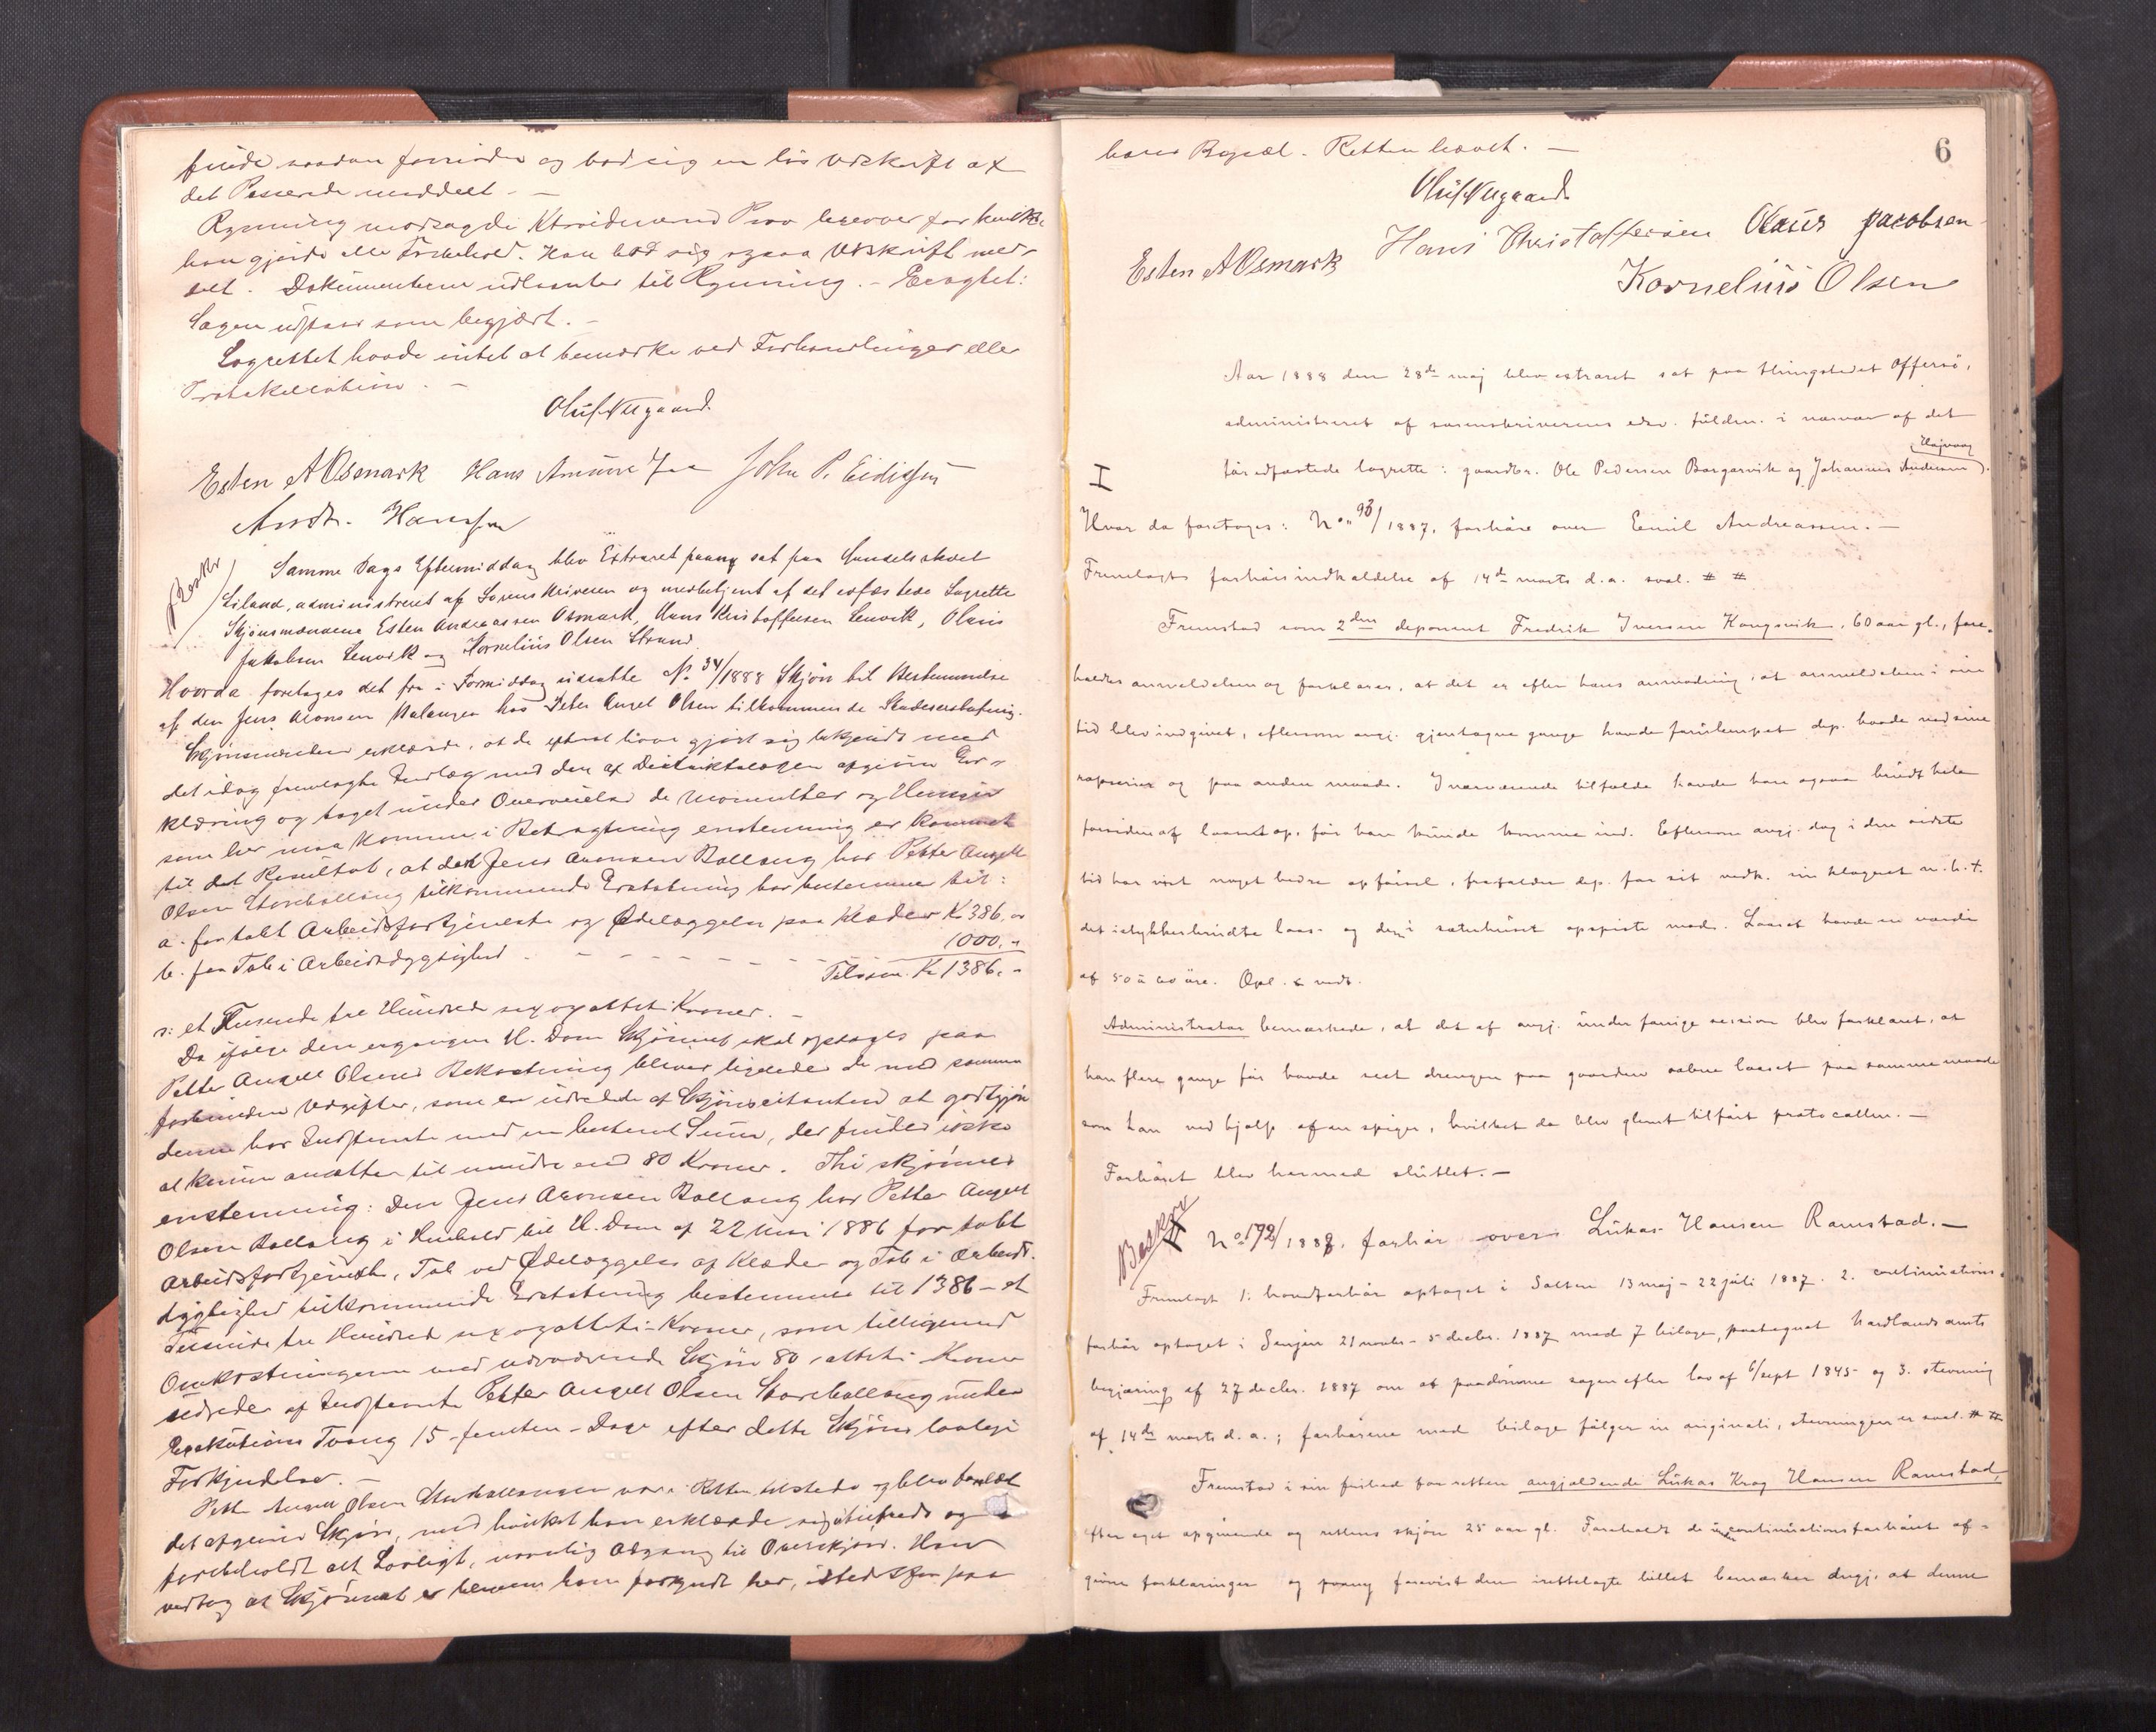 finde saadan fornøden og bad sig en løs Udskrift af
det Passerede meddeelt. —
Rynning modsagde Kravidnernes Prov herover for hvilket
han gjorde alle Forbehold. Han bad sig ogsaa Udskrift med-
delt. Dokumenterne udlaantes til Rynning. — Eragtet:
Sagen udstaar som begjært. —
Lagrettet havde intet at bemærke ved Forhandlinger eller
Protokollation. —
Oluf Nygaard
Esten A Osmark Hans John P. Eidissen
Andr. Hansen
Beskr
Samme Dags Eftermiddag blev Extraret paany sat paa Lensmandsskoel
Liland, administreret af Sorenskriveren og medbetjent af det edfæstede Lagrette
Skjønsmændene Esten Andreassen Osmark, Hans Kristoffersen Lenvik, Olaus
Jakobsen Lenvik og Kornelius Olsen Strand.
Hvorda foretages det fra i Formiddag udsatte No 34/1888 Skjøn til Bestemmelse
af den Jens Aronsen Balangen hos Peter Angel Olsen tilkommende Skadeserstatning.
Skjønsmændene erklærede, at de iforveien have gjort sig bekjendt med
det idag fremlagte Indlæg med den af Distriktslægen afgivne Er-
klæring og taget under Overveielse de Momenter og Hensyn
som her maa komme i Betragtning enstemmig er kommet
til det Resultat, at den Jens Aronsen Ballang hos Petter Angell
Olsen Storeballang tilkommende Erstatning bør bestemmes til:
a. for tabt Arbeidsfortjeneste og Ødelæggelse paa Klæder K 386,00
b. for Tab i Arbeidsdygtighed - - - - - - 1000,-
Tilsam. Kr 1386,-
s: et Tusinde tre Hundred sex og otteti Kroner. —
Da ifølge den ergangne U. Dom Skjønnet skal optages paa
Petter Angell Olsens Bekostning bliver ligeledes de med samme
forbundne Udgifter, som er udredede af Skjønscitanten at godtgjøre
denne hos Indstevnte med en bestemt Sum, der findes ikke
at kunne ansættes til mindre end 80 Kroner. Thi skjønnes
enstemmig: Den Jens Aronsen Ballang hos Petter Angell
Olsen Ballang i Henhold til U. Dom af 22 Mai 1886 for tabt
Arbeidsfortjeneste, Tab ved Ødelæggelse af Klæder og Tab i Arbeids-
dygtighed tilkommende Erstatning bestemmes til 1386 — et
Tusinde tre Hundred sex og otteti - Kroner, som tilligemed
Omkostningerne ved nærværende Skjøn 80 - otteti - Kroner
udredes af Indstevnte Petter Angell Olsen Storeballang under
Exekutions Tvang 15 - femten - Dage efter dette Skjøns lovlige
Forkyndelse. —
Petter Angell Olsen Storballangen var i Retten tilstede og blev forelæst
det afgivne Skjøn, med hvilket han erklærede sig utilfreds og
forbeholdt alt Lovligt, navnlig Adgang til Overskjøn. Han
vedtog at Skjønnet er ham forkyndt her, istedetfor paa
6
hans Bopæl. Retten hævet. —
Oluf Nygaard
Esten A Osmark Hans Christoffersen Olaus Jacobsen
Kornelius Olsen
Aar 1888 den 28de maj blev extraret sat paa thingstedet Offersø,
administreret af sorenskriverens edsv. fuldm. i nærvær af det
før edfæstede lagrette: gaardbr. Ole Pedersen Bargarvik og Johannes Andersen (Hajvaag).
I
Hvor da foretoges: No 93/1887, forhøre over Emil Andreassen. —
Fremlagtes forhørsindkaldelse af 14de marts d.a. saal. # #
Fremstod som 2den deponent Fredrik Iversen Kongsvik, 60 aar gl., fore-
holdes anmeldelsen og forklarer, at det er efter hans anmodning, at anmeldelsen i sin
tid blev indgivet, eftersom angj. gjentagne gange havde forulempet dep. baade med sine
rapserier og paa anden maade. I nærværende tilfælde havde han ogsaa brudt hele
forsiden af laaset op, før han kunde komme ind. Eftersom angj. dog i den sidste
tid har vist noget bedre opførsel, frafalder dep. for sit vedk. sin klagret m.h.t.
det istykkerbrudte laas- og den i sæterhuset opspiste mad. Laaset havde en værdi
af 50 à 60 øre. Opl. & vedt.
Administrator bemærkede, at det af angj. under forrige session blev forklaret, at
han flere gange før havde seet drengen paa gaarden aabne laaset paa samme maade
som han ved hjælp af en spiger, hvilket da blev glemt tilført protocollen. —
Forhøret blev hermed sluttet. —
Beskr
II
No 192/1888, forhør over Lukas Hansen Ramstad. —
Fremlagt 1. hovedforhør optaget i Salten 13 maj - 22 juli 1887. 2. continuations-
forhør optaget i Senjen 21 novbr. - 5 decbr. 1887 med 7 bilage, paategnet Nordlands amts
begjæring af 27 decbr. 1887 om at paadømme sagen efter lov af 6/sept 1845 og 3. stevning
af 14de marts d.a.; forhørene med bilage følger in originali, stevningen er saal. # #
Fremstod i sin frihed for retten angjældende Lukas Krog Hansen Ramstad,
efter eget opgivende og rettens skjøn 25 aar gl. Foreholdt de under continuationsforhøret af-
givne forklaringer og paany forevist den irettelagte billet bemærker angj. at denne